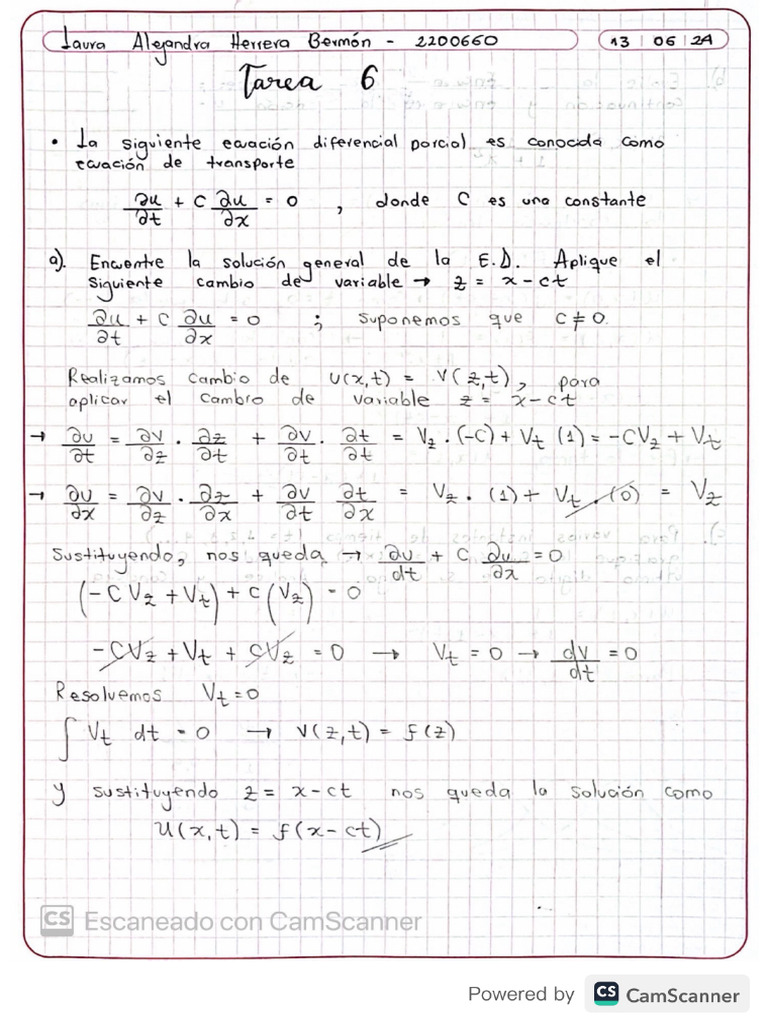 Laura Alejandra Herrera Bermón - 2200660 13 | 06 | 24
Tarea 6
• La siguiente ecuación diferencial parcial es conocida como
ecuación de transporte
∂u/∂t + C ∂u/∂x = 0 , donde C es una constante
a). Encuentre la solución general de la E.D. Aplique el
siguiente cambio de variable → z = x - ct
∂u/∂t + C ∂u/∂x = 0 ; suponemos que C ≠ 0.
Realizamos cambio de u(x,t) = v(z,t), para
aplicar el cambio de variable z = x - ct
→ ∂u/∂t = ∂v/∂z · ∂z/∂t + ∂v/∂t · ∂t/∂t = Vz · (-C) + Vt (1) = -CVz + Vt
→ ∂u/∂x = ∂v/∂z · ∂z/∂x + ∂v/∂t ∂t/∂x = Vz · (1) + Vt · (0) = Vz
Sustituyendo, nos queda → ∂u/dt + C ∂u/∂x = 0
(-C Vz + Vt) + C (Vz) = 0
-CVz + Vt + CVz = 0 → Vt = 0 → dv/dt = 0
Resolvemos Vt = 0
∫ Vt dt = 0 → V(z,t) = f(z)
y sustituyendo z = x - ct nos queda la solución como
u(x,t) = f(x - ct)
CS Escaneado con CamScanner
Powered by CS CamScanner